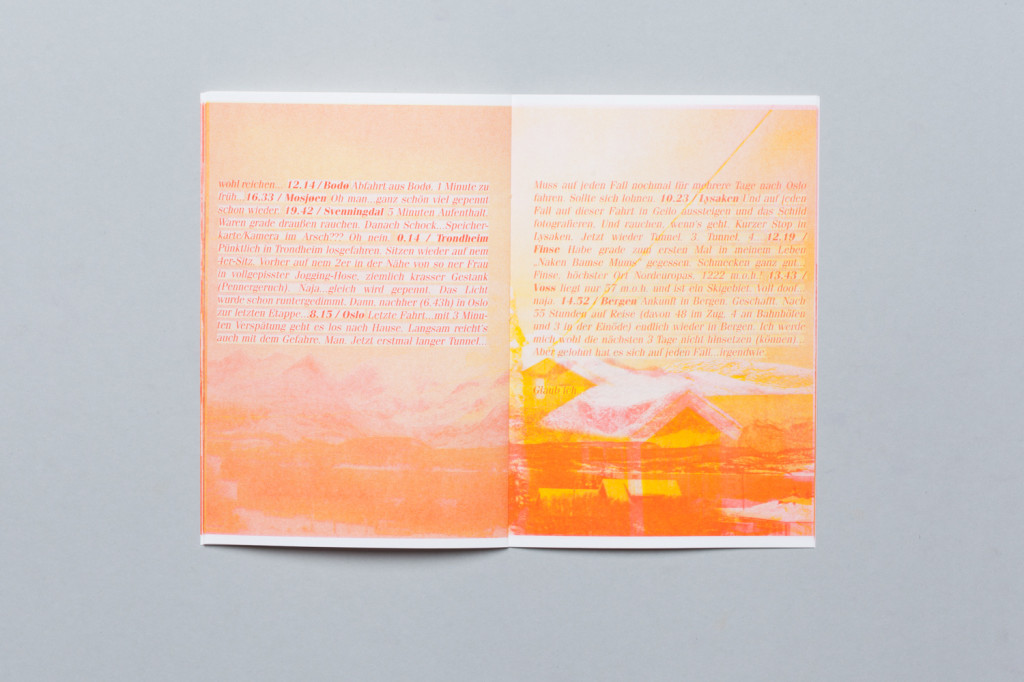 wohl reichen... 12.14 / Bodø Abfahrt aus Bodø. 1 Minute zu
früh...16.33 / Mosjøen Oh man...ganz schön viel gepennt
schon wieder. 19.42 / Svenningdal 5 Minuten Aufenthalt.
Waren grade draußen rauchen. Danach Schock...Speicher-
karte/Kamera im Arsch??? Oh nein. 0.14 / Trondheim
Pünktlich in Trondheim losgefahren. Sitzen wieder auf nem
4er-Sitz. Vorher auf nem 2er in der Nähe von so ner Frau
in vollgepisster Jogging-Hose, ziemlich krasser Gestank
(Pennergeruch). Naja...gleich wird gepennt. Das Licht
wurde schon runtergedimmt. Dann, nachher (6,43h) in Oslo
zur letzten Etappe...8.15 / Oslo Letzte Fahrt...mit 3 Minu-
ten Verspätung geht es los nach Hause. Langsam reicht's
auch mit dem Gefahre. Man. Jetzt erstmal langer Tunnel...
Muss auf jeden Fall nochmal für mehrere Tage nach Oslo
fahren. Sollte sich lohnen. 10.23 / Lysaken Und auf jeden
Fall auf dieser Fahrt in Geilo aussteigen und das Schild
fotografieren. Und rauchen, wenn's geht. Kurzer Stop in
Lysaken. Jetzt wieder Tunnel. 3. Tunnel, 4... 12.19 /
Finse Habe grade zum ersten Mal in meinem Leben
„Naken Bamse Mums" gegessen. Schmecken ganz gut...
Finse, höchster Ort Nordeuropas, 1222 m.o.h.! 13.43 /
Voss liegt nur 57 m.o.h. und ist ein Skigebiet. Voll doof...
naja. 14.52 / Bergen Ankunft in Bergen. Geschafft. Nach
55 Stunden auf Reise (davon 48 im Zug, 4 an Bahnhöfen
und 3 in der Einöde) endlich wieder in Bergen. Ich werde
mich wohl die nächsten 3 Tage nicht hinsetzen (können)...
Aber gelohnt hat es sich auf jeden Fall...irgendwie.
Glaub ich.